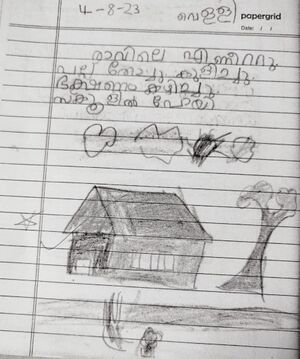 4-8-23 വെള്ളി papergrid
Date: / /
രാവിലെ എണീറ്റു.
പല്ല് തേച്ചു കുളിച്ചു.
ഭക്ഷണം കഴിച്ചു.
സ്കൂളിൽ പോയി